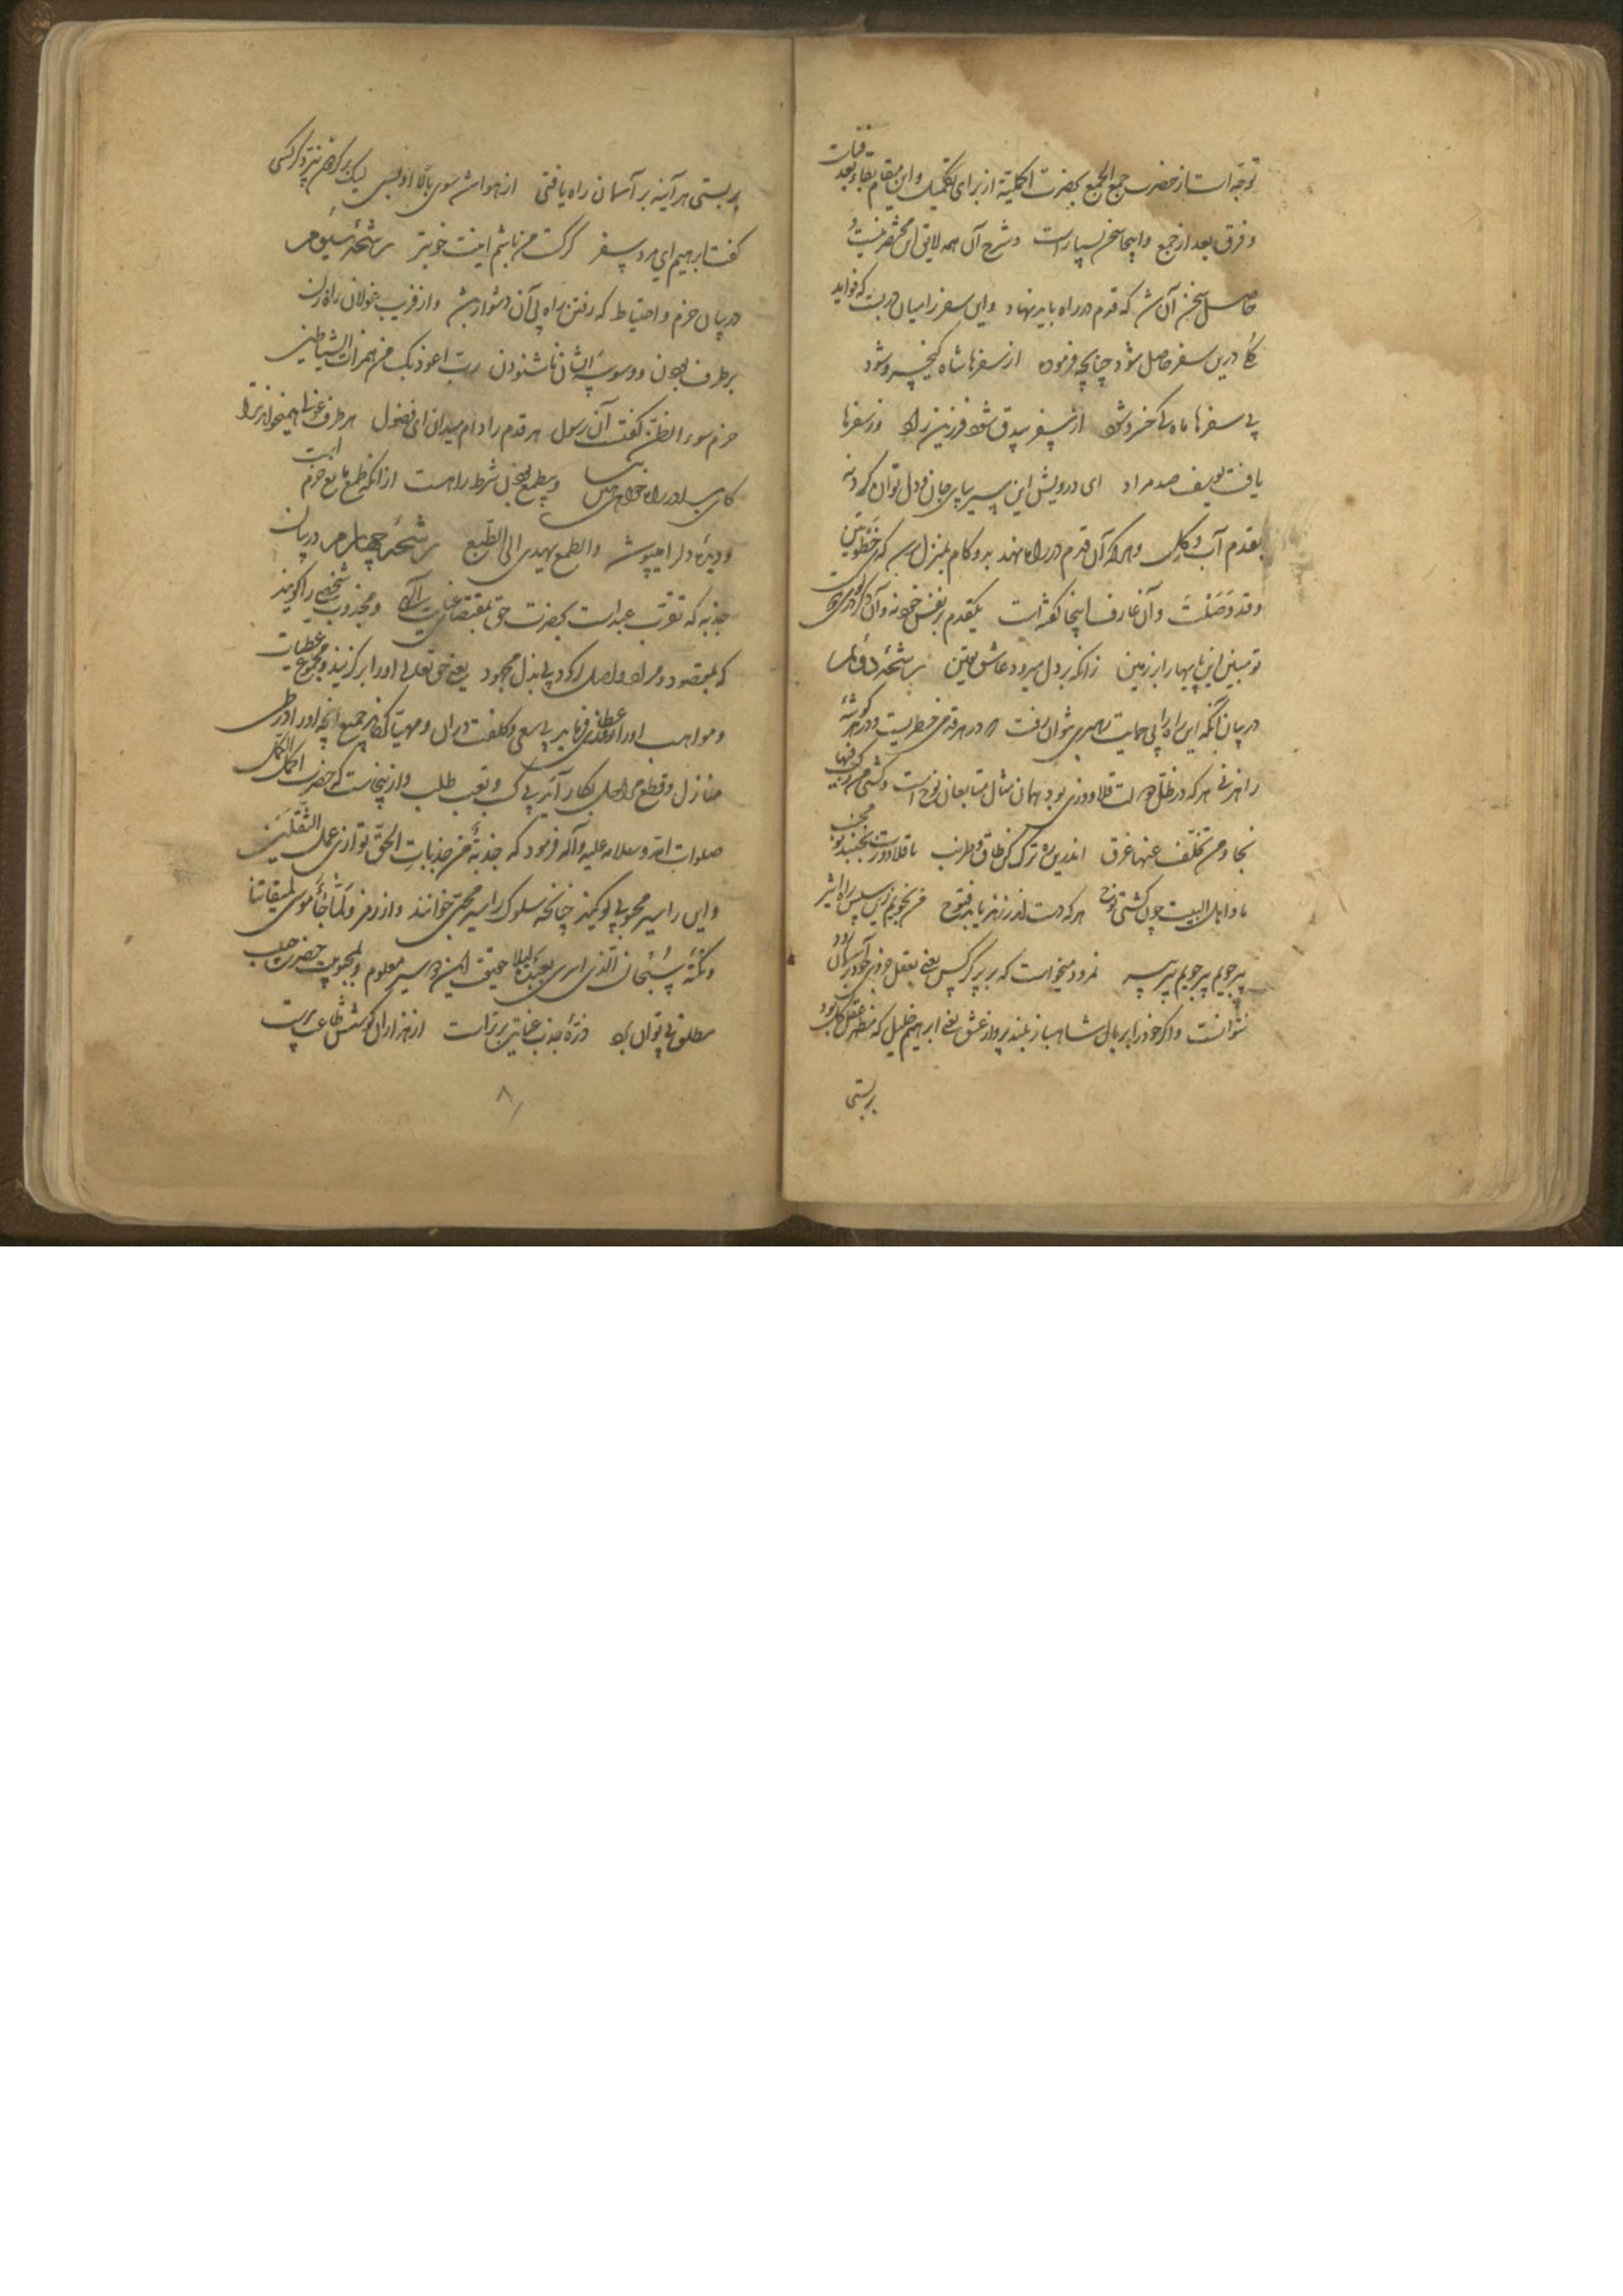 توجه است از حضرت جمع الجمع بحضرت اکملیة از برای تکمیل و این مقام بقاء بعد فناست
و فرق بعد از جمع و اینجا سخن بسیار است و شرح آن همه لایق این مختصر نیست و
حاصل سخن آن ش که قدم در راه باید نهاد و این سفر را میان در بست که فواید
کلی درین سفر حاصل شود چنانچه فرموده از سفرها شاه کیخسرو شود
بی سفرها ماه کی خسرو شود از سفر بیدق شود فرزین راد وز سفرها
یافت یوسف صد مراد ای درویش این سیر بپای جان و دل توان کرد نه
بقدم آب و گل و هر که آن قدم در راه نهد بدو کام بمنزل رسد که خطوتین
وقد وصلت و آن عارف اینجا گفته است یکقدم بر نفس خود نه وان دگر در کوی دوست
تو مبین این پایها را بر زمین زانکه بر دل میرود عاشق یقین رشحهٔ دوم
در بیان آنکه این راه را بی حمایت رهبری نتوان رفت که در هر قدمی خطریست و در هر گوشهٔ
راهزنی هر که در ظل دولت قلاووزی بود بهمان مثال متابعان نوح است و کشتی من رکب فیها
نجا و من تخلف عنها غرق اندرین ره ترک کن طاق و طرنب تا قلاوزت نجنبد تو مجنب
ما و اهل البیت چون کشتی نوح هر که دست اندر زند یابد فتوح من نجویم زین سپس راه اثیر
پیر جویم پیر جویم پیر پیر نمرود میخواست که بر پر کرکس یعنی بعقل جزوی خود بر آسمان رود
نتوانست و اگر خود را بر بال شاهباز بلند پرواز عشق یعنی ابراهیم خلیل که مظهر عقل کل بود
بربستی
بربستی هر آینه بر آسمان راه یافتی از هوا شو سوی بالا او بسی لیک بر گردون نپرد کرکسی
گفت ابراهیم ای مرد سفر کرکست من باشم اینت خوبتر رشحهٔ سیوم
در بیان حزم و احتیاط که رفتن براه بی آن دشوار بش و از فریب غولان راه زن
بر طرف بودن و وسوسهٔ ایشان ناشنودن رب اعوذ بک من همزات الشیاطین
حزم سوء الظن گفت آن رسول هر قدم را دام میدان ای فضول هر طرف غولی همیخواند ترا
کای برادر راه خواهی هین بیا و بیطمع بودن شرط راهست از آنکه طمع مانع حزم است
و دیدهٔ دل را میپوشد و الطمع یهدی الی الطبع رشحهٔ چهارم در بیان
جذبه که تقرب عبد است بحضرت حق بمقتضای عنایت الٓهی و مجذوب شخصی را گویند
که بمقصود و مراد واصل گردد بی بذل مجهود یعنی حق تعالی او را برگزیند و مجموع عطیات
و مواهب او را ارزانی فرماید بی سعی و کلفت در آن و مهیا گرداند جمیع آنچه او را در طی
منازل و قطع مراحل بکار آید بی کسب و تعب طلب و از اینجاست که حضرت اکمل الکمل
صلوات الله و سلامه علیه و آله فرمود که جذبة من جذبات الحق توازی عمل الثقلین
و این را سیر محبوبی گویند چنانچه سلوک را سیر محبی خوانند و از رمز ولما جاء موسی لمیقاتنا
و نکتهٔ سبحان الذی اسری بعبده لیلا حقیقت این دو سیر معلوم و محبوبیت حضرت حبیب
مطلق پی توان برد ذرهٔ جذب عنایت برتر است از هزاران کوشش طاعت پرست
۸